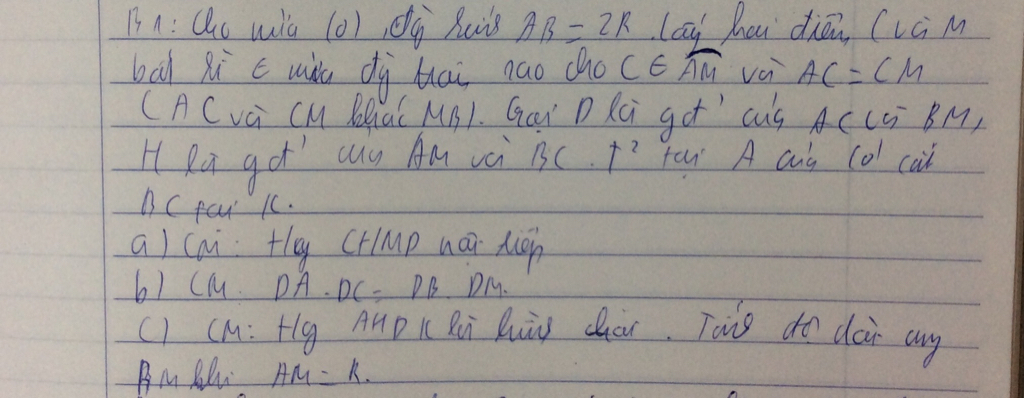 B1: Cho nửa (O), đg kính AB = 2R. Lấy hai điểm C và M
bất kì ∈ nửa đg tròn sao cho C ∈ AM và AC = CM
(AC và CM khác MB). Gọi D là gđ' của AC và BM,
H là gđ' của AM và BC. t² tại A của (O) cắt
BC tại K.
a) CM: t/g CHMD nội tiếp
b) CM: DA.DC = DB.DM.
c) CM: t/g AHDK là hình thoi. Tính độ dài cung
BM khi AM = R.